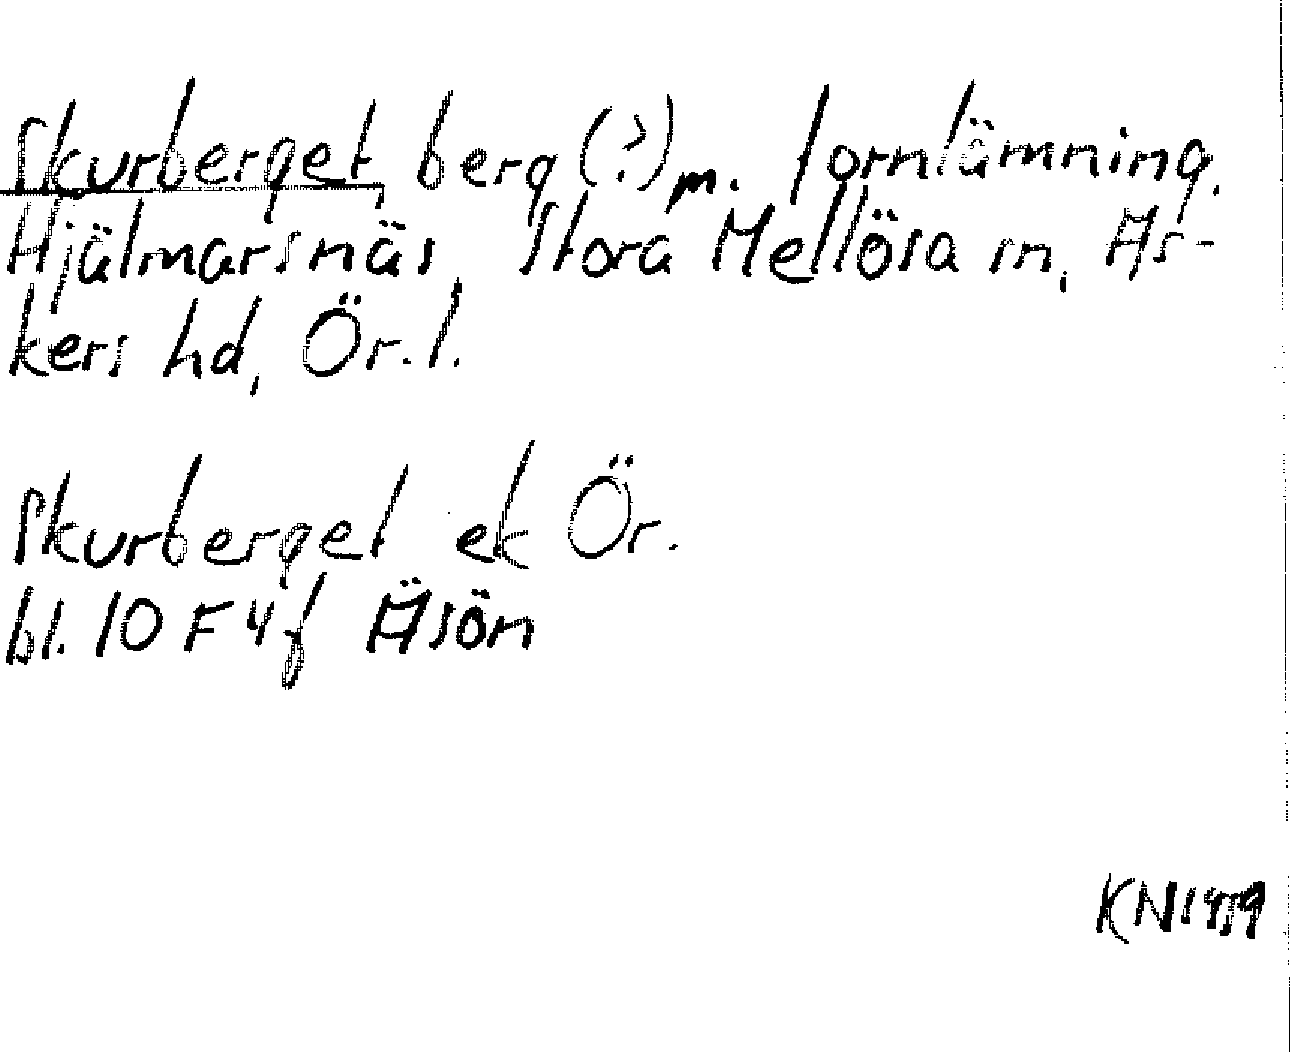 Skurberget berg (?) m. fornlämning,
Hjälmarsnäs, Stora Mellösa sn, As-
kers hd, Ör. l.
Skurberget ek Ör.
bl. 10 F 4 f Äsön